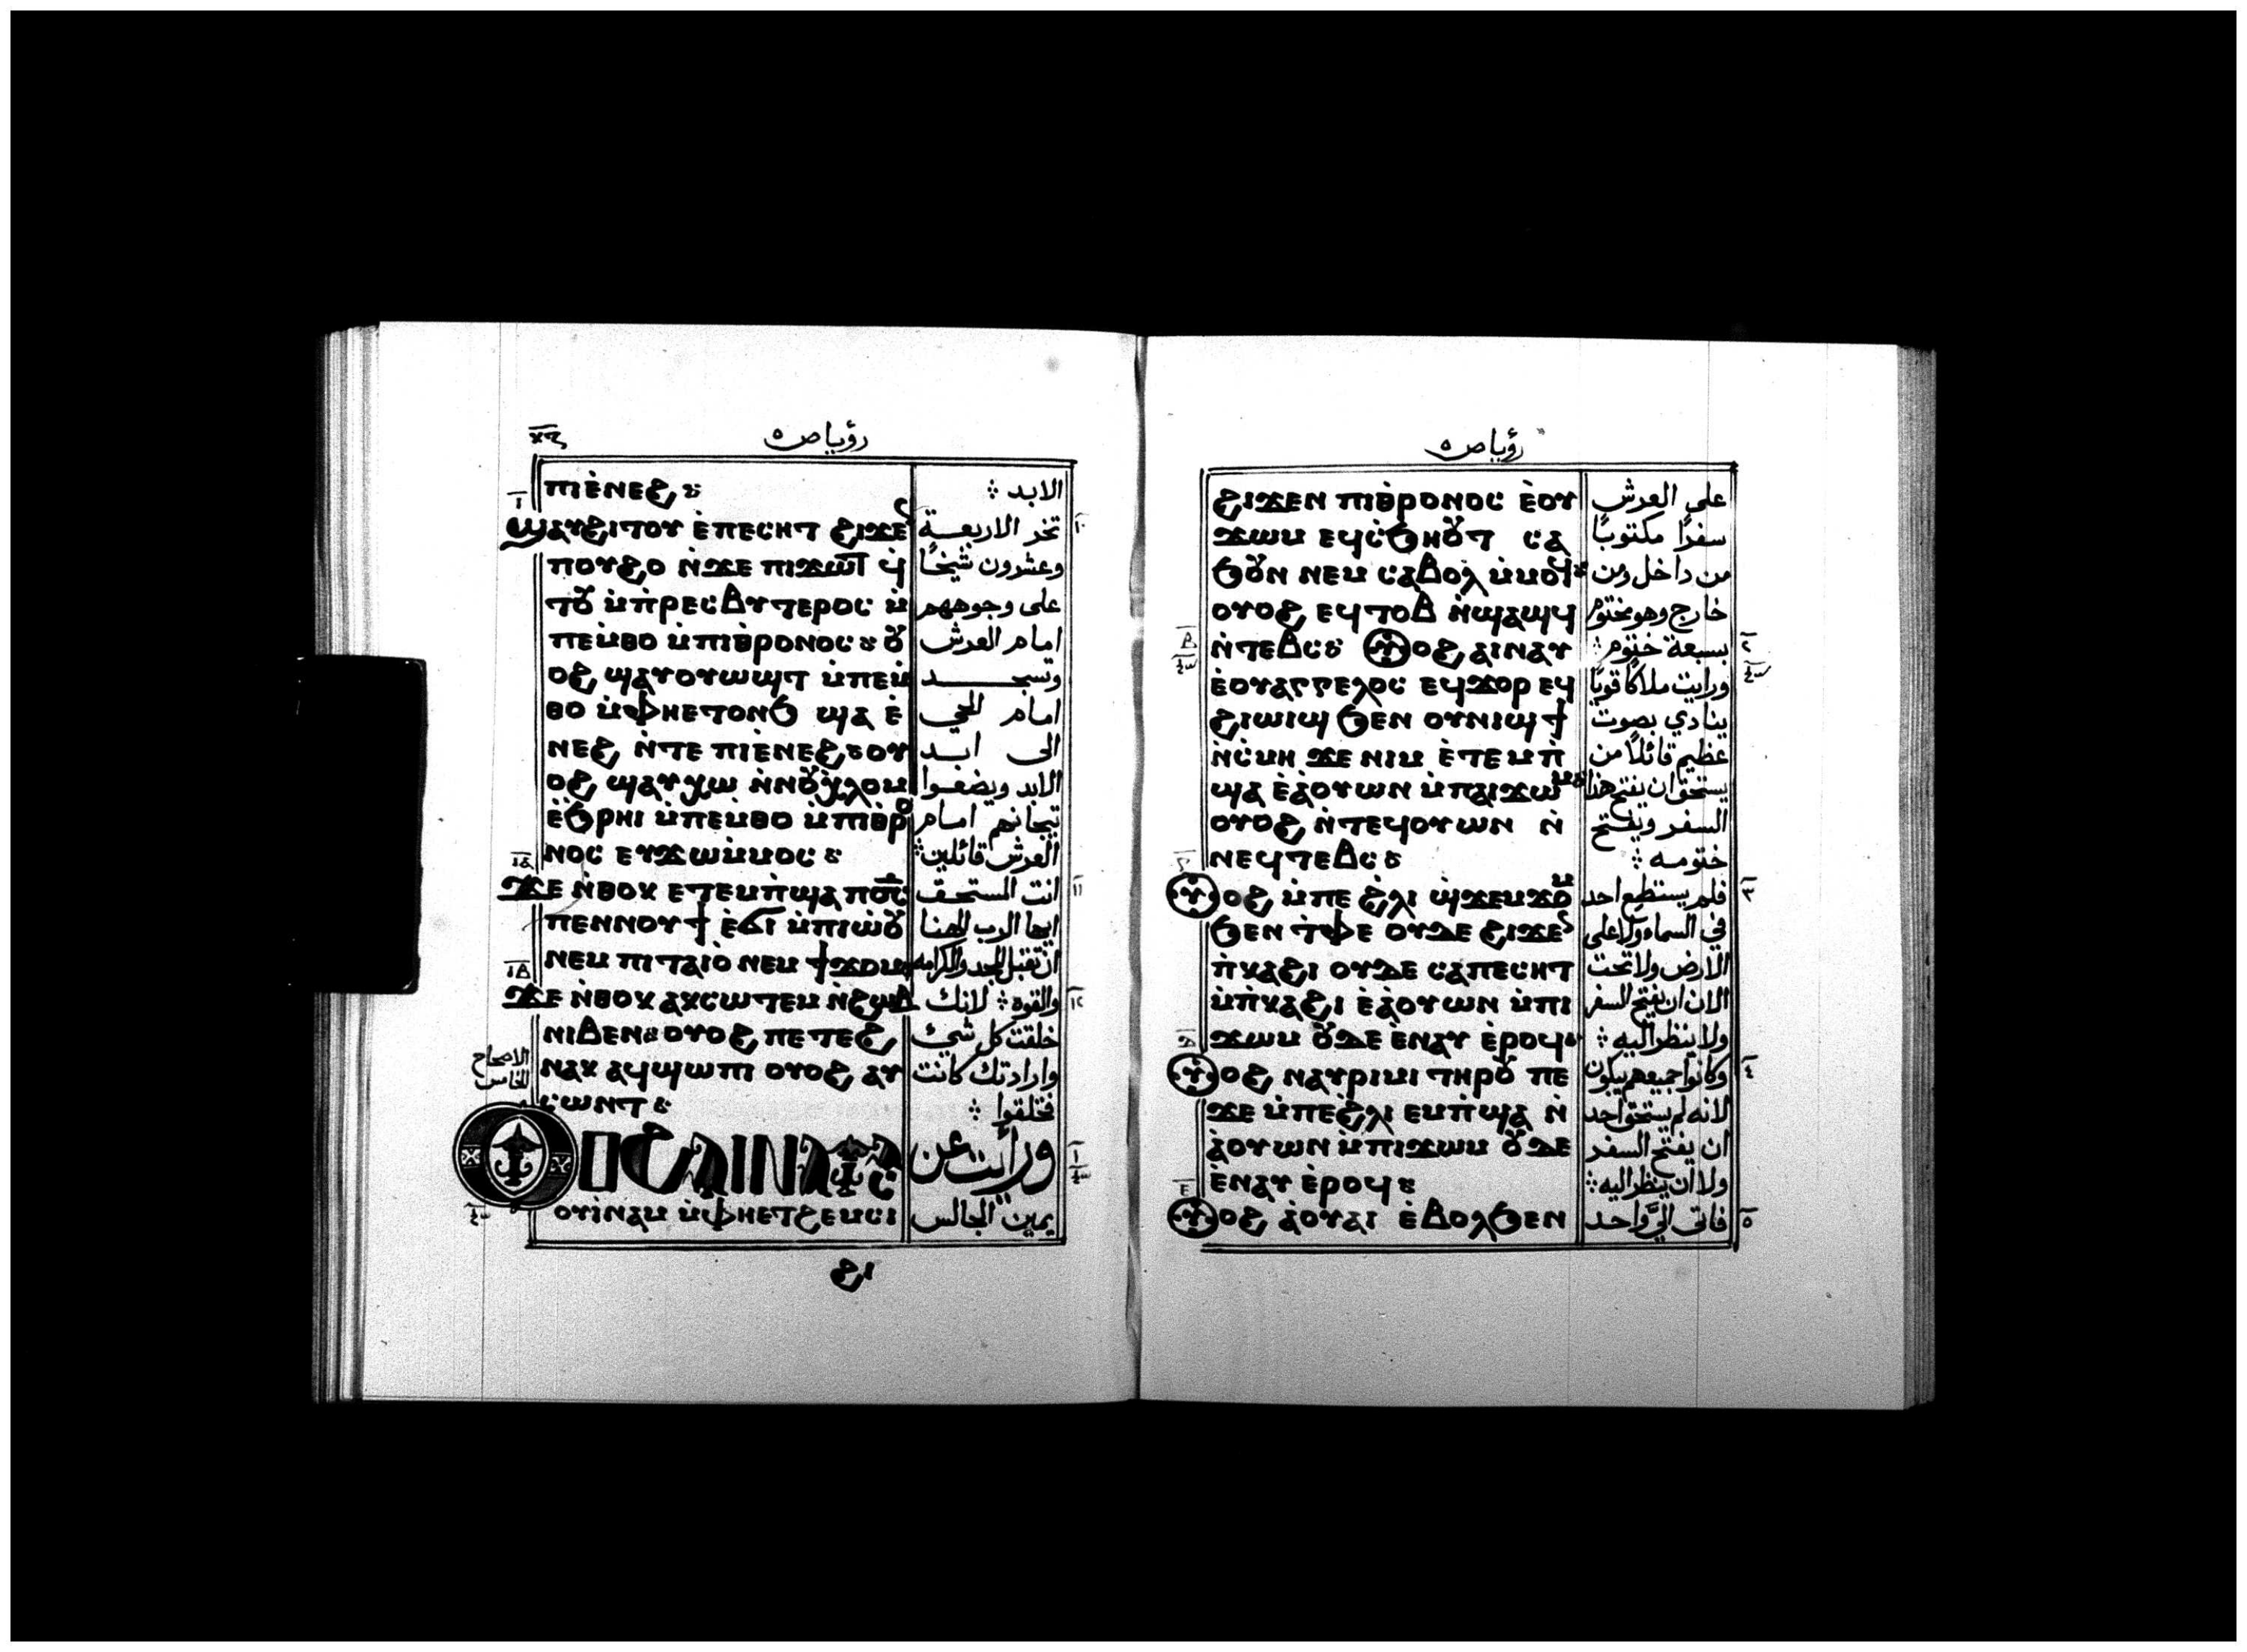 رؤيا ص ٥
ⲡⲓⲉ̀ⲛⲉϩ
ϣⲁⲩϩⲓⲧⲟⲩ ⲉ̀ⲡⲉⲥⲏⲧ ϩⲓϫⲉ
ⲡⲟⲩϩⲟ ⲛ̀ϫⲉ ⲡⲓϫⲱⲧ
ⲡⲉⲙ̀ⲑⲟ ⲙ̀ⲡⲓⲑ̀ⲣⲟⲛⲟⲥ
ⲟϩ ϣⲁⲩⲟⲩⲱϣⲧ ⲙ̀ⲡⲉⲙ̀
ⲑⲟ ⲙ̀ⲫⲏⲉⲧⲟⲛϧ ϣⲁ ⲉ̀
ⲛⲉϩ ⲛ̀ⲧⲉ ⲡⲓⲉ̀ⲛⲉϩ ⲟⲩ
ⲟϩ ϣⲁⲩⲭⲱ ⲛ̀ⲛⲟⲩⲭ̀ⲗⲟⲙ
ⲉ̀ϧ̀ⲣⲏⲓ ⲙ̀ⲡⲉⲙ̀ⲑⲟ ⲙ̀ⲡⲓⲑ̀ⲣⲟ
ⲛⲟⲥ ⲉⲩϫⲱⲙ̀ⲙⲟⲥ
ϫⲉ ⲛ̀ⲑⲟⲕ ⲉⲧⲉⲙⲡ̀ϣⲁ ⲡϭⲥ
ⲡⲉⲛⲛⲟⲩϯ ⲉ̀ϭⲓ ⲙ̀ⲡⲓⲱ̀ⲟⲩ
ⲛⲉⲙ ⲡⲓⲧⲁⲓⲟ̀ ⲛⲉⲙ ϯϫⲟⲙ
ϫⲉ ⲛ̀ⲑⲟⲕ ⲁⲕⲥⲱⲧⲉⲙ ⲛ̀ϩⲱⲃ
ⲛⲓⲃⲉⲛ ⲟⲩⲟϩ ⲡⲉⲧⲉϩ
ⲛⲁⲕ ⲁϥϣⲱⲡⲓ ⲟⲩⲟϩ ⲁⲩ
ⲥⲱⲛⲧ
ⲟⲩⲓ̀ⲛⲁⲙ ⲙ̀ⲫⲏⲉⲧϩⲉⲙⲥⲓ
ϩⲓ
الابد
تخر الاربعـة
وعشرون شيخًا
على وجوههم
امام العرش
وتسجـد
امام الحي
الى ابـد
الابد ويضعـوا
تيجانهم امـام
العرش قائلين
انت المستحـق
ايها الرب الهنا
ان تقبل المجد والكرامه
والقوه لانك
خلقت كل شيئ
وارادتك كانت
فخلقوا
الاصحاح
الخامس
ورأيت عن
يمين الجالس
رؤيا ص ٥
ϩⲓϫⲉⲛ ⲡⲓⲑ̀ⲣⲟⲛⲟⲥ ⲉ̀ⲟⲩ
ϫⲱⲙ ⲉϥⲥ̀ϧⲏⲟⲩⲧ ⲥⲁ
ϧⲟⲩⲛ ⲛⲉⲙ ⲥⲁⲃⲟⲗ ⲙ̀ⲙⲟϥ
ⲟⲩⲟϩ ⲉϥⲧⲟⲃ ⲛ̀ϣⲁϣϥ
ⲛ̀ⲧⲉⲃⲥ ⲟⲩⲟϩ ⲁⲓⲛⲁⲩ
ⲉ̀ⲟⲩⲁⲅⲅⲉⲗⲟⲥ ⲉϥϫⲟⲣ ⲉϥ
ϩⲓⲱⲓϣ ϧⲉⲛ ⲟⲩⲛⲓϣϯ
ⲛ̀ⲥ̀ⲙⲏ ϫⲉ ⲛⲓⲙ ⲉ̀ⲧⲉⲙⲡ̀
ϣⲁ ⲉ̀ⲁ̀ⲟⲩⲱⲛ ⲙ̀ⲡⲁⲓϫⲱⲙ
ⲟⲩⲟϩ ⲛ̀ⲧⲉϥⲟⲩⲱⲛ ⲛ̀
ⲛⲉϥⲧⲉⲃⲥ
ⲟⲩⲟϩ ⲙ̀ⲡⲉ ϩ̀ⲗⲓ ϣ̀ϫⲉⲙϫⲟⲙ
ϧⲉⲛ ⲧ̀ⲫⲉ ⲟⲩⲇⲉ ϩⲓϫⲉⲛ
ⲡ̀ⲕⲁϩⲓ ⲟⲩⲇⲉ ⲥⲁⲡⲉⲥⲏⲧ
ⲙ̀ⲡ̀ⲕⲁϩⲓ ⲉ̀ⲁ̀ⲟⲩⲱⲛ ⲙ̀ⲡⲓ
ϫⲱⲙ ⲟⲩⲇⲉ ⲉ̀ⲛⲁⲩ ⲉ̀ⲣⲟϥ
ⲟⲩⲟϩ ⲛⲁⲩⲣⲓⲙⲓ ⲧⲏⲣⲟⲩ ⲡⲉ
ϫⲉ ⲙ̀ⲡⲉϩ̀ⲗⲓ ⲉⲙⲡ̀ϣⲁ ⲛ̀
ⲁ̀ⲟⲩⲱⲛ ⲙ̀ⲡⲓϫⲱⲙ ⲟⲩⲇⲉ
ⲉ̀ⲛⲁⲩ ⲉ̀ⲣⲟϥ
ⲟⲩⲟϩ ⲁ̀ⲟⲩⲁⲓ ⲉ̀ⲃⲟⲗϧⲉⲛ
على العرش
سفرًا مكتوبًا
من داخل ومن
خارج وهو مختوم
بسبعة ختوم
ورايت ملاكًا قويًا
ينادي بصوت
عظيم قائلًا من
يستحق ان يفتح هذا
السفر ويفتح
ختومـه
فلم يستطيع احد
في السماء ولا على
الارض ولا تحت
الارض ان يفتح السفر
ولا ينظر اليه
وكانوا جميعهم يبكون
لانه لم يستحق احد
ان يفتح السفر
ولا ان ينظر اليه
فاتى اليَّ واحد